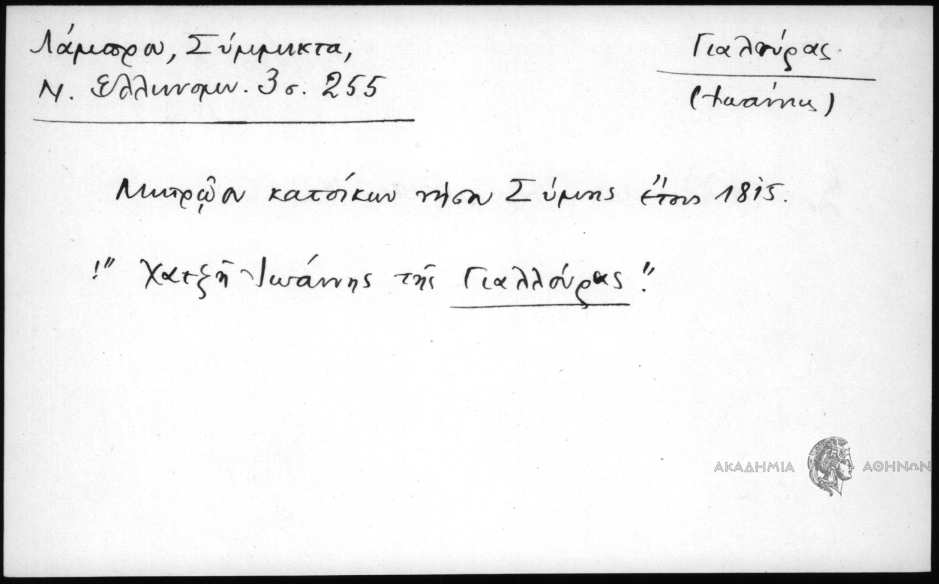 Λάμπρου, Σύμμικτα,
Ν. Ελληνομν. 3 σ. 255
Γιαλούρας
(Ιωάννης)
Μητρῷον κατοίκων νήσου Σύμης ἔτους 1815.
!" Χατζῆ Ἰωάννης τῆς Γιαλλούρας".
ΑΚΑΔΗΜΙΑ ΑΘΗΝΩΝ